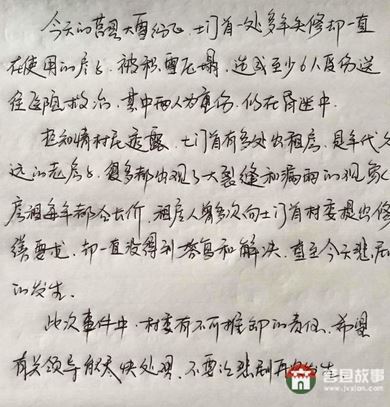 今天的莒县大雪纷飞，土门首一处多年失修却一直
在使用的房屋，被积雪压塌，造成至少6人受伤送
往医院救治，其中两人为重伤，仍在昏迷中．
据知情村民透露，土门首有多处出租房，是年代久
远的老房屋，很多都出现了大裂缝和漏雨的现象，
房租每年都会长价，租房人曾多次向土门首村委提出修
缮要求，却一直没得到答复和解决，直至今天悲剧
的发生．
此次事件中，村委有不可推卸的责任，希望
有关领导能尽快处理，不要让悲剧再次发生．
莒县故事
www.jvxian.com